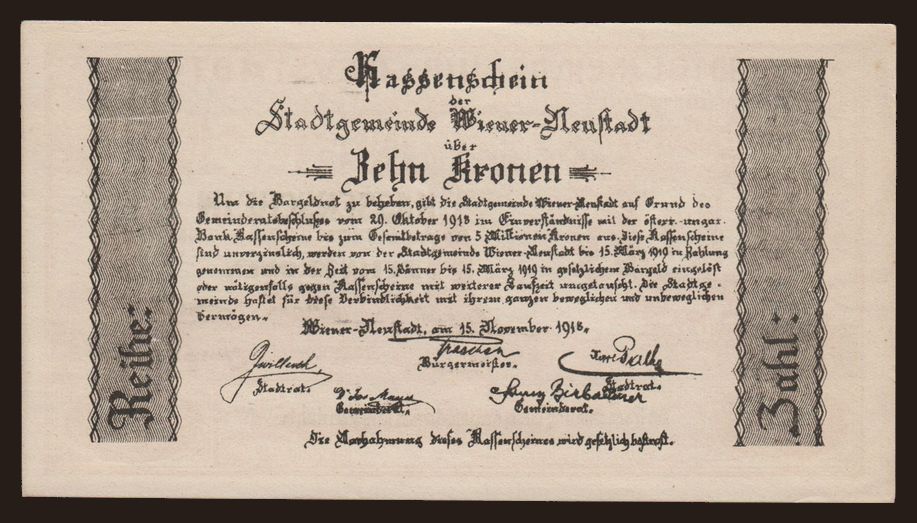 Kassenschein
der
Stadtgemeinde Wiener-Neustadt
über
Zehn Kronen
Um die Bargeldnot zu beheben, gibt die Stadtgemeinde Wiener-Neustadt auf Grund des
Gemeinderatsbeschlußes vom 29. Oktober 1918 im Einverständnisse mit der österr.-ungar.
Bank Kassenscheine bis zum Gesamtbetrage von 5 Millionen Kronen aus. Diese Kassenscheine
sind unverzinslich, werden von der Stadtgemeinde Wiener-Neustadt bis 15. März 1919 in Zahlung
genommen und in der Zeit vom 15. Jänner bis 15. März 1919 in gesetzlichem Bargeld eingelöst
oder nötigenfalls gegen Kassenscheine mit weiterer Laufzeit umgetauscht. Die Stadtge-
meinde haftet für diese Verbindlichkeit mit ihrem ganzen beweglichen und unbeweglichen
Vermögen.
Wiener-Neustadt, am 15. November 1918.
Bürgermeister.
Stadtrat.
Stadtrat.
Gemeinderat.
Gemeinderat.
Die Nachahmung dieses Kassenscheines wird gesetzlich bestraft.
Reihe:
Zahl: